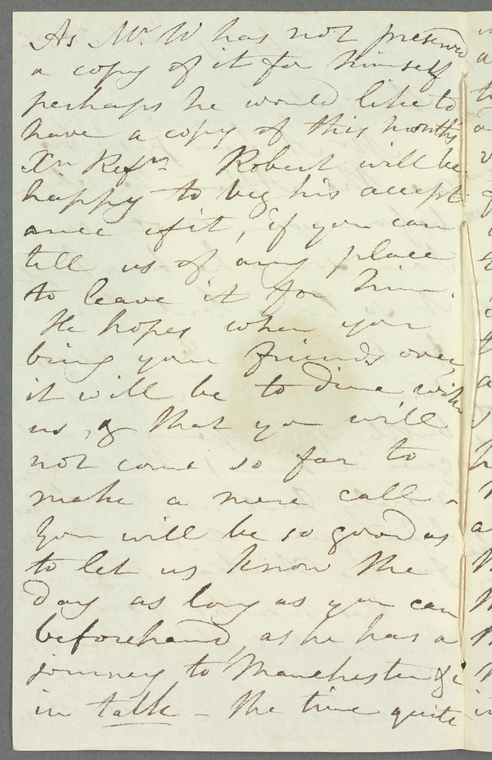 As Mr. W has not preserved
a copy of it for himself
perhaps he would like to
have a copy of this month's
Xn Refmr Robert will be
happy to beg his accept-
ance of it, if you can
tell us of any place
to leave it for him.
He hopes when you
bring your friends over,
it will be to dine with
us, & that you will
not come so far to
make a mere call -
You will be so good as
to let us know the
day as long as you can
beforehand, as he has a
journey to Manchester &c
in talk - the time quite